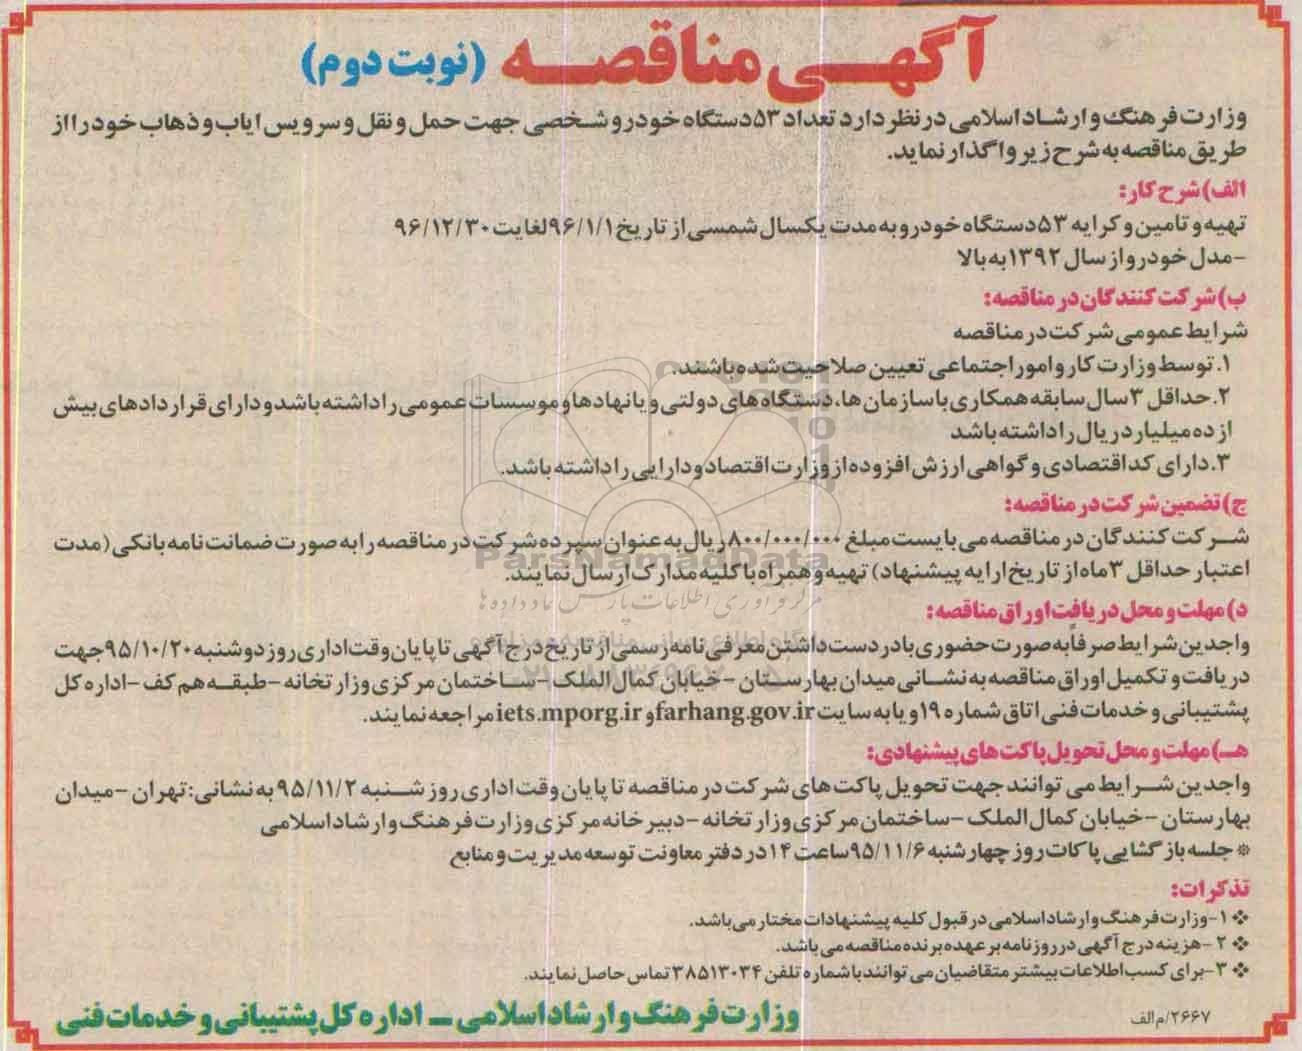 آگهی مناقصه (نوبت دوم)
وزارت فرهنگ و ارشاد اسلامی در نظر دارد تعداد ۵۳ دستگاه خودرو شخصی جهت حمل و نقل و سرویس ایاب و ذهاب خود را از
طریق مناقصه به شرح زیر واگذار نماید.
الف) شرح کار:
تهیه و تامین و کرایه ۵۳ دستگاه خودرو به مدت یکسال شمسی از تاریخ ۹۶/۱/۱ لغایت ۹۶/۱۲/۳۰
-مدل خودرو از سال ۱۳۹۲ به بالا
ب) شرکت کنندگان در مناقصه:
شرایط عمومی شرکت در مناقصه
۱. توسط وزارت کار و امور اجتماعی تعیین صلاحیت شده باشند.
۲. حداقل ۳ سال سابقه همکاری با سازمان ها، دستگاه های دولتی و یا نهادها و موسسات عمومی را داشته باشد و دارای قراردادهای بیش
از ده میلیارد ریال را داشته باشد
۳. دارای کد اقتصادی و گواهی ارزش افزوده از وزارت اقتصاد و دارایی را داشته باشد.
ج) تضمین شرکت در مناقصه:
شرکت کنندگان در مناقصه می بایست مبلغ ۸۰۰/۰۰۰/۰۰۰ ریال به عنوان سپرده شرکت در مناقصه را به صورت ضمانت نامه بانکی (مدت
اعتبار حداقل ۳ ماه از تاریخ ارایه پیشنهاد) تهیه و همراه با کلیه مدارک ارسال نمایند.
د) مهلت و محل دریافت اوراق مناقصه:
واجدین شرایط صرفاً به صورت حضوری با در دست داشتن معرفی نامه رسمی از تاریخ درج آگهی تا پایان وقت اداری روز دوشنبه ۹۵/۱۰/۲۰ جهت
دریافت و تکمیل اوراق مناقصه به نشانی میدان بهارستان -خیابان کمال الملک -ساختمان مرکزی وزارتخانه -طبقه هم کف -اداره کل
پشتیبانی و خدمات فنی اتاق شماره ۱۹ و یا به سایت farhang.gov.ir و iets.mporg.ir مراجعه نمایند.
هـ) مهلت و محل تحویل پاکت های پیشنهادی:
واجدین شرایط می توانند جهت تحویل پاکت های شرکت در مناقصه تا پایان وقت اداری روز شنبه ۹۵/۱۱/۲ به نشانی: تهران -میدان
بهارستان -خیابان کمال الملک -ساختمان مرکزی وزارتخانه -دبیرخانه مرکزی وزارت فرهنگ و ارشاد اسلامی
* جلسه بازگشایی پاکات روز چهارشنبه ۹۵/۱۱/۶ ساعت ۱۴ در دفتر معاونت توسعه مدیریت و منابع
تذکرات:
❖ ۱-وزارت فرهنگ و ارشاد اسلامی در قبول کلیه پیشنهادات مختار می باشد.
❖ ۲-هزینه درج آگهی در روزنامه بر عهده برنده مناقصه می باشد.
❖ ۳-برای کسب اطلاعات بیشتر متقاضیان می توانند با شماره تلفن ۳۸۵۱۳۰۳۴ تماس حاصل نمایند.
۲۶۶۷/م الف
وزارت فرهنگ و ارشاد اسلامی – اداره کل پشتیبانی و خدمات فنی
ParsNamadData
مرکز فرآوری اطلاعات پارس نماد داده ها